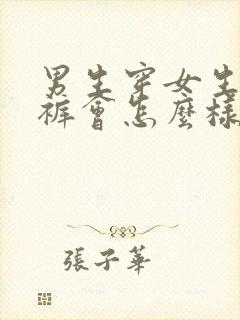 男生穿女生
裤會怎麼樣
張子華